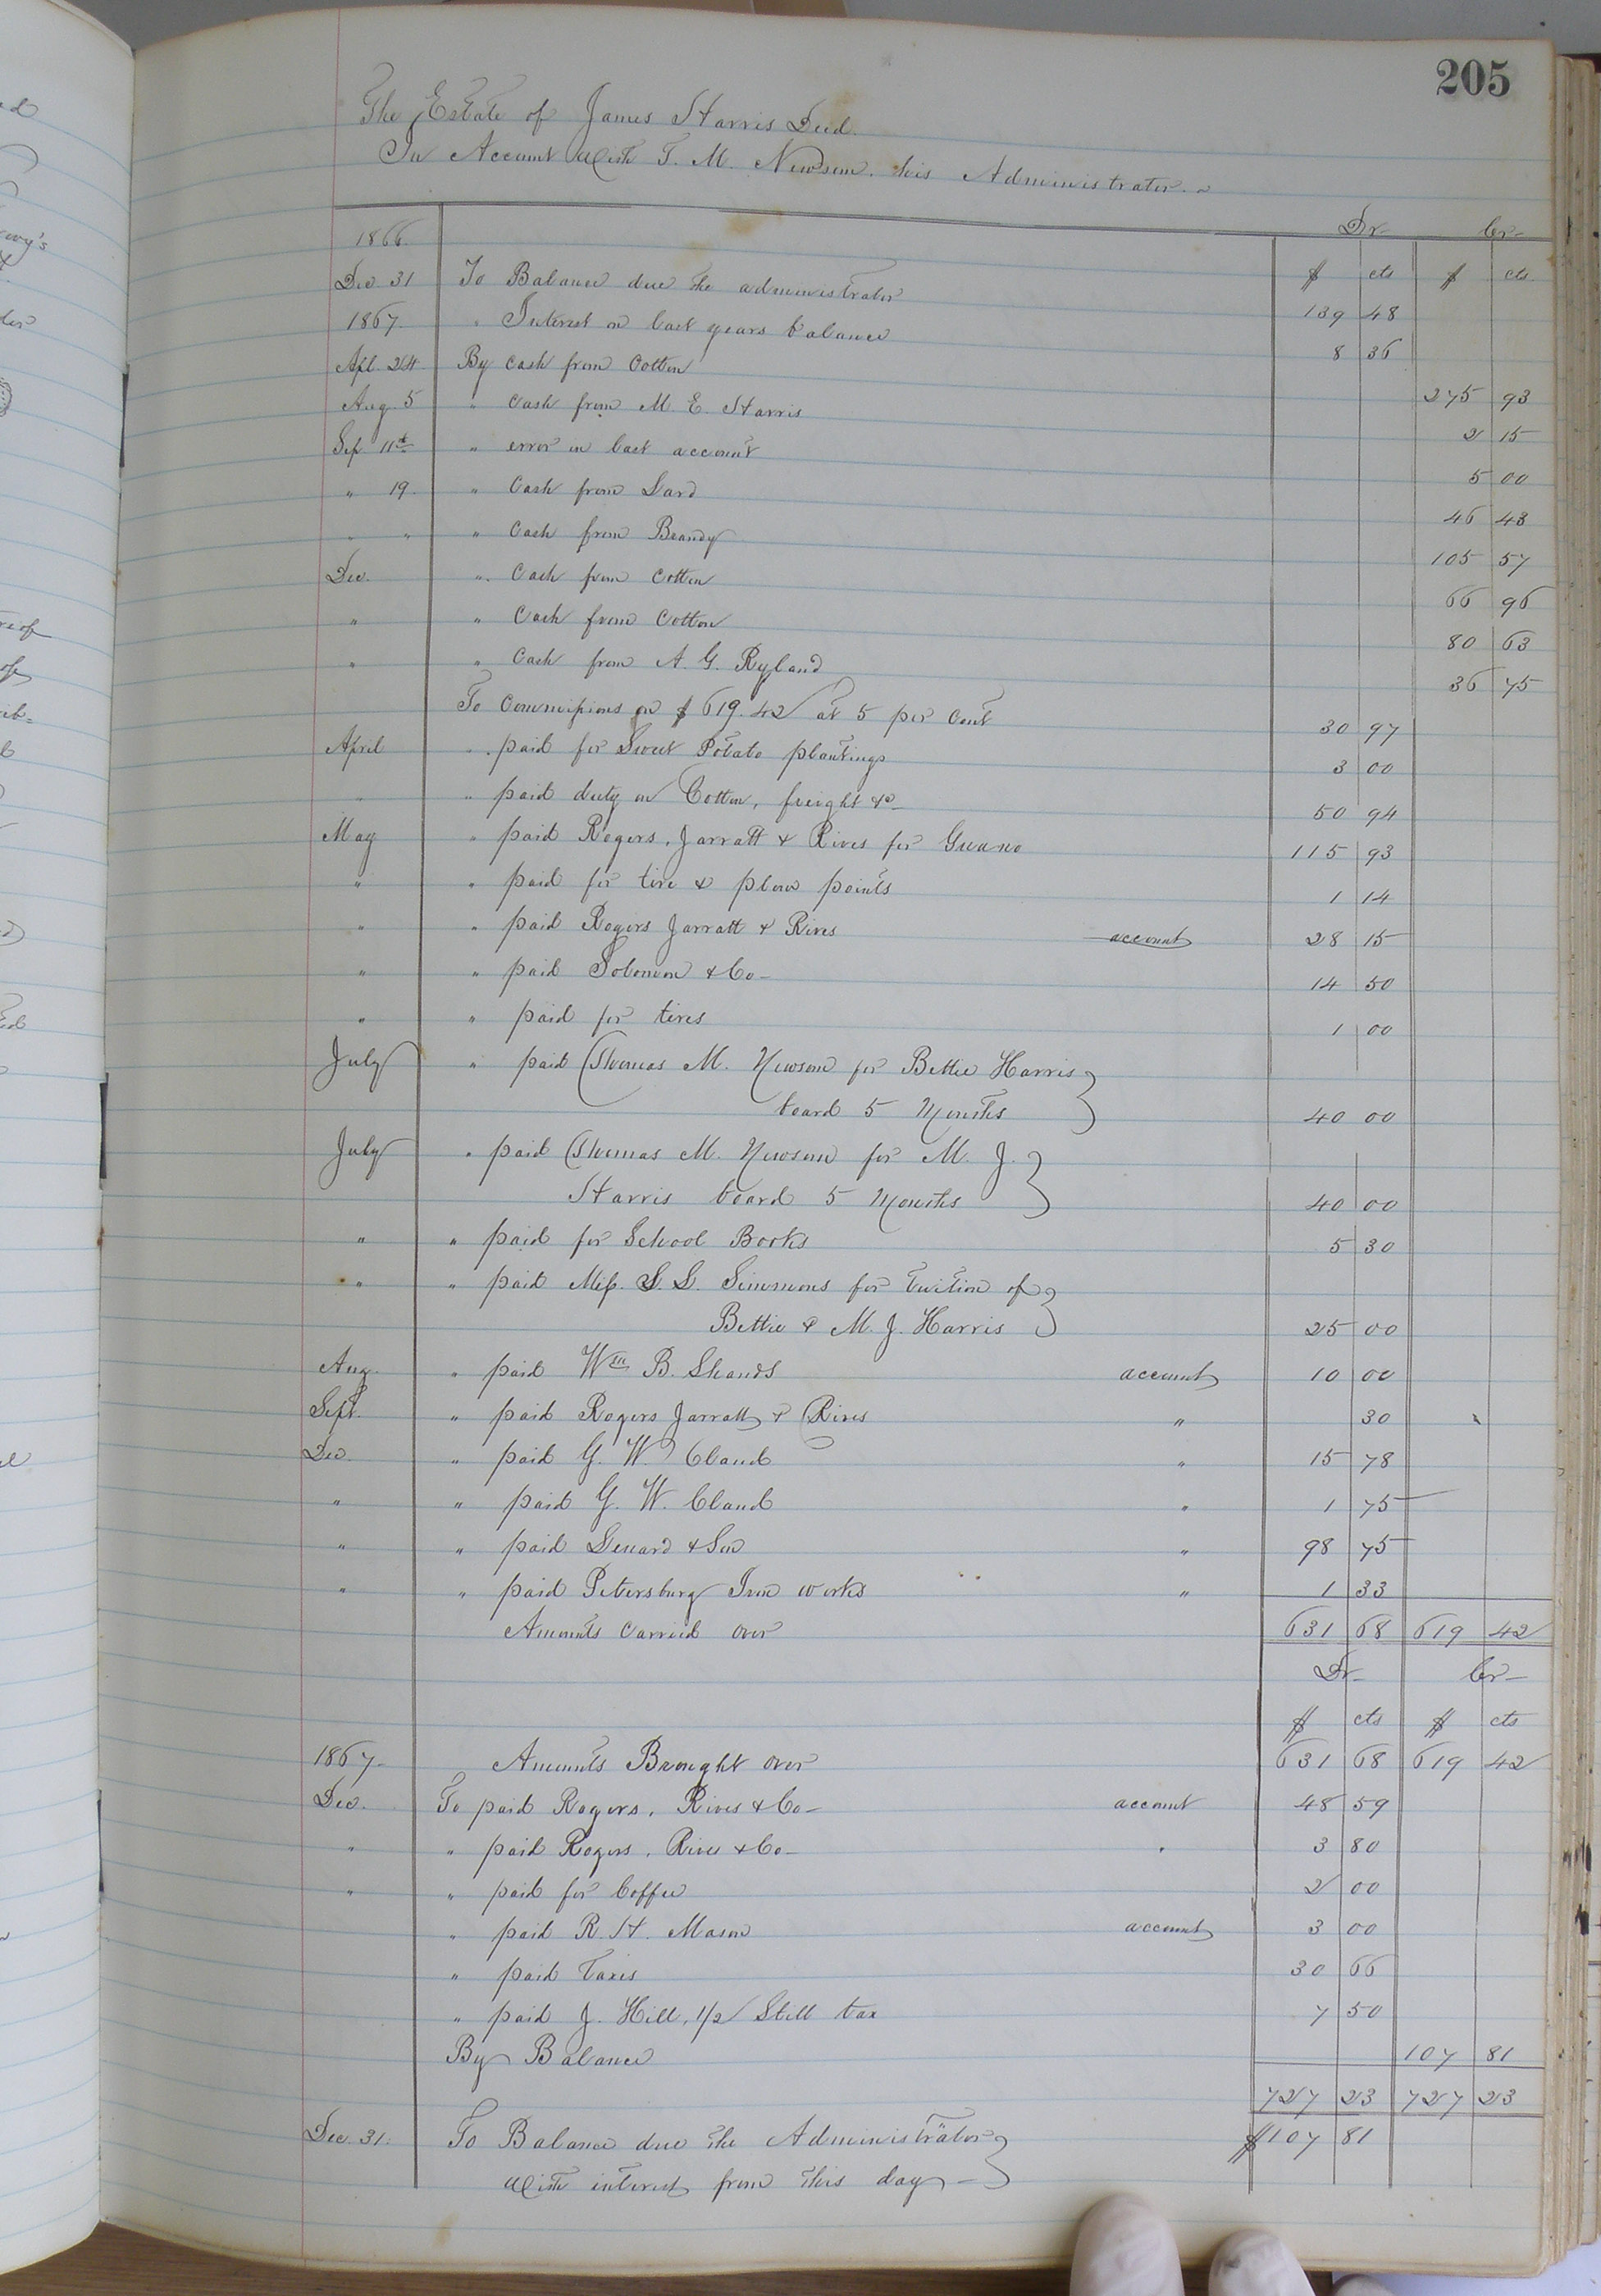 205
The Estate of James Harris Decd.
In Account with T. M. Newsom. his Administrator.
Dr Cr
1866.
$ cts $ cts
Dec 31 To Balance due the administrator 139 48
1867. " Interest on last years balance 8 36
Apl. 24 By cash from Cotton 275 93
Aug. 5 " Cash from M. E. Harris 2 15
Sep 11th " error in last account 5 00
" 19. " Cash from Lard 46 43
" " " Cash from Brandy 105 57
Dec. " Cash from Cotton 66 96
" " Cash from Cotton 80 63
" " Cash from A. G. Ryland 36 75
To Commissions on $619.42 at 5 per Cent 30 97
April " paid for Sweet Potato plantings 3 00
" " paid duty on Cotton, freight &c 50 94
May " paid Rogers, Jarratt & Rives for Guano 115 93
" " paid for tire & plow points 1 14
" " paid Rogers Jarratt & Rives account 28 15
" " paid Solomon & Co 14 50
" " paid for tires 1 00
July " paid Thomas M. Newsom for Bettie Harris
board 5 Months 40 00
July " paid Thomas M. Newsom for M. J.
Harris board 5 Months 40 00
" " paid for School Books 5 30
" " paid Miss. S. S. Simmons for tuition of
Bettie & M. J. Harris 25 00
Aug. " paid Wm B. Shands account 10 00
Sept. " paid Rogers Jarratt & Rives " 30
Dec. " paid G. W. Claud " 15 78
" " paid G. W. Claud " 1 75
" " paid Lenard & Son " 98 75
" " paid Petersburg Iron works " 1 33
Amounts Carried over 631 68 619 42
Dr Cr
$ cts $ cts
1867. Amounts Brought over 631 68 619 42
Dec. To paid Rogers, Rives & Co account 48 59
" " paid Rogers, Rives & Co " 3 80
" " paid for Coffee 2 00
" paid R. H. Mason account 3 00
" paid Taxes 30 66
" paid J. Hill, 1/2 Still tax 7 50
By Balance 107 81
727 23 727 23
Dec. 31. To Balance due the Administrator $107 81
with interest from this day